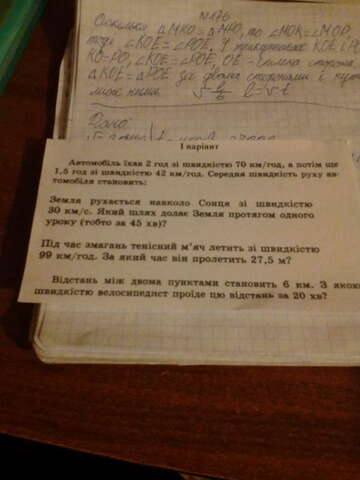 №176
Оскільки △MKO = △MPO, то ∠MOK = ∠MOP,
тоді ∠KOE = ∠POE. У трикутниках KOE і P
KO=PO, ∠KOE = ∠POE, OE - спільна сторона.
△KOE = △POE за двома сторонами і кут
між ними.
Дано:
І варіант
Автомобіль їхав 2 год зі швидкістю 70 км/год, а потім ще
1,5 год зі швидкістю 42 км/год. Середня швидкість руху ав
томобіля становить:
Земля рухається навколо Сонця зі швидкістю
30 км/с. Який шлях долає Земля протягом одного
уроку (тобто за 45 хв)?
Під час змагань тенісний м'яч летить зі швидкістю
99 км/год. За який час він пролетить 27,5 м?
Відстань між двома пунктами становить 6 км. З якою
швидкістю велосипедист проїде цю відстань за 20 хв?